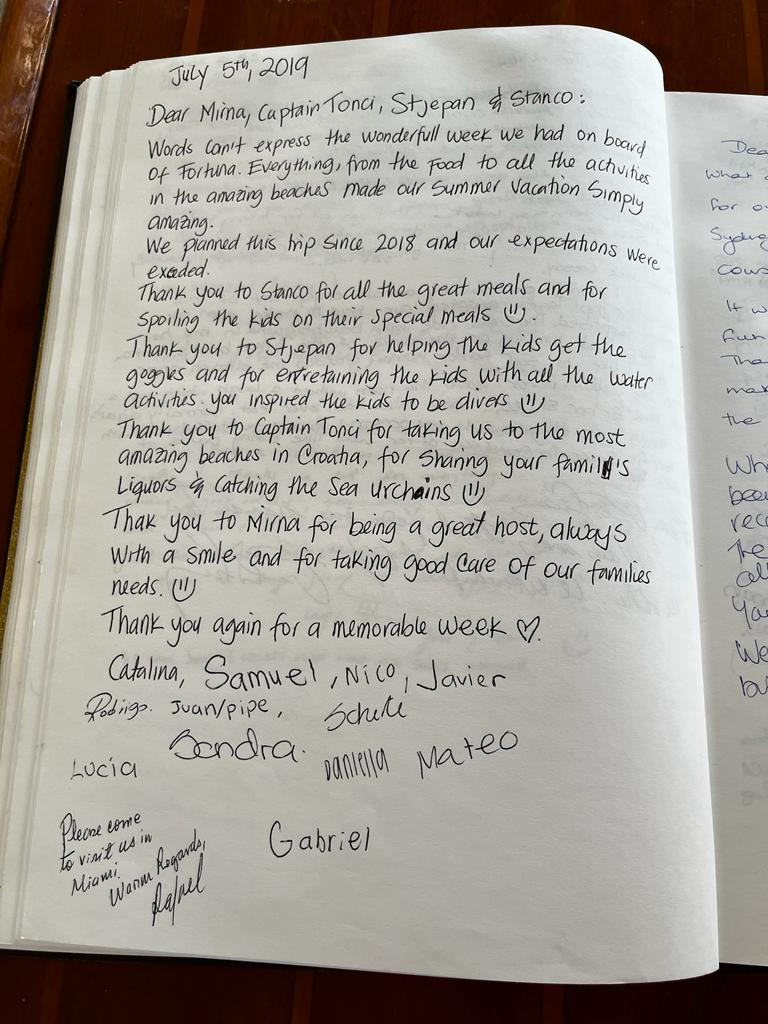 July 5th, 2019
Dear Mirna, Captain Tonci, Stjepan & Stanco:
Words can't express the wonderfull week we had on board
of Fortuna. Everything, from the food to all the activities
in the amazing beaches made our Summer Vacation Simply
amazing.
We planned this trip since 2018 and our expectations were
exeded.
Thank you to Stanco for all the great meals and for
spoiling the kids on their special meals
Thank you to Stjepan for helping the kids get the
goggles and for entretaining the kids with all the water
activities. you inspired the kids to be divers
Thank you to Captain Tonci for taking us to the most
amazing beaches in Croatia, for sharing your family's
Liquors & Catching the Sea urchains
Thak you to Mirna for being a great host, always
with a smile and for taking good care of our families
needs.
Thank you again for a memorable week ♡.
Catalina, Samuel, Nico, Javier
Rodrigo. Juan/pipe,
Sandra.
Lucia Daniella Mateo
Gabriel
Please come
to visit us in
Miami.
Warm Regards,
Rafael
Dea
What
for o
Sydney
Cows
It w
fun
Tha
mak
the
Wh
bee
reco
the
all
You
We
bu